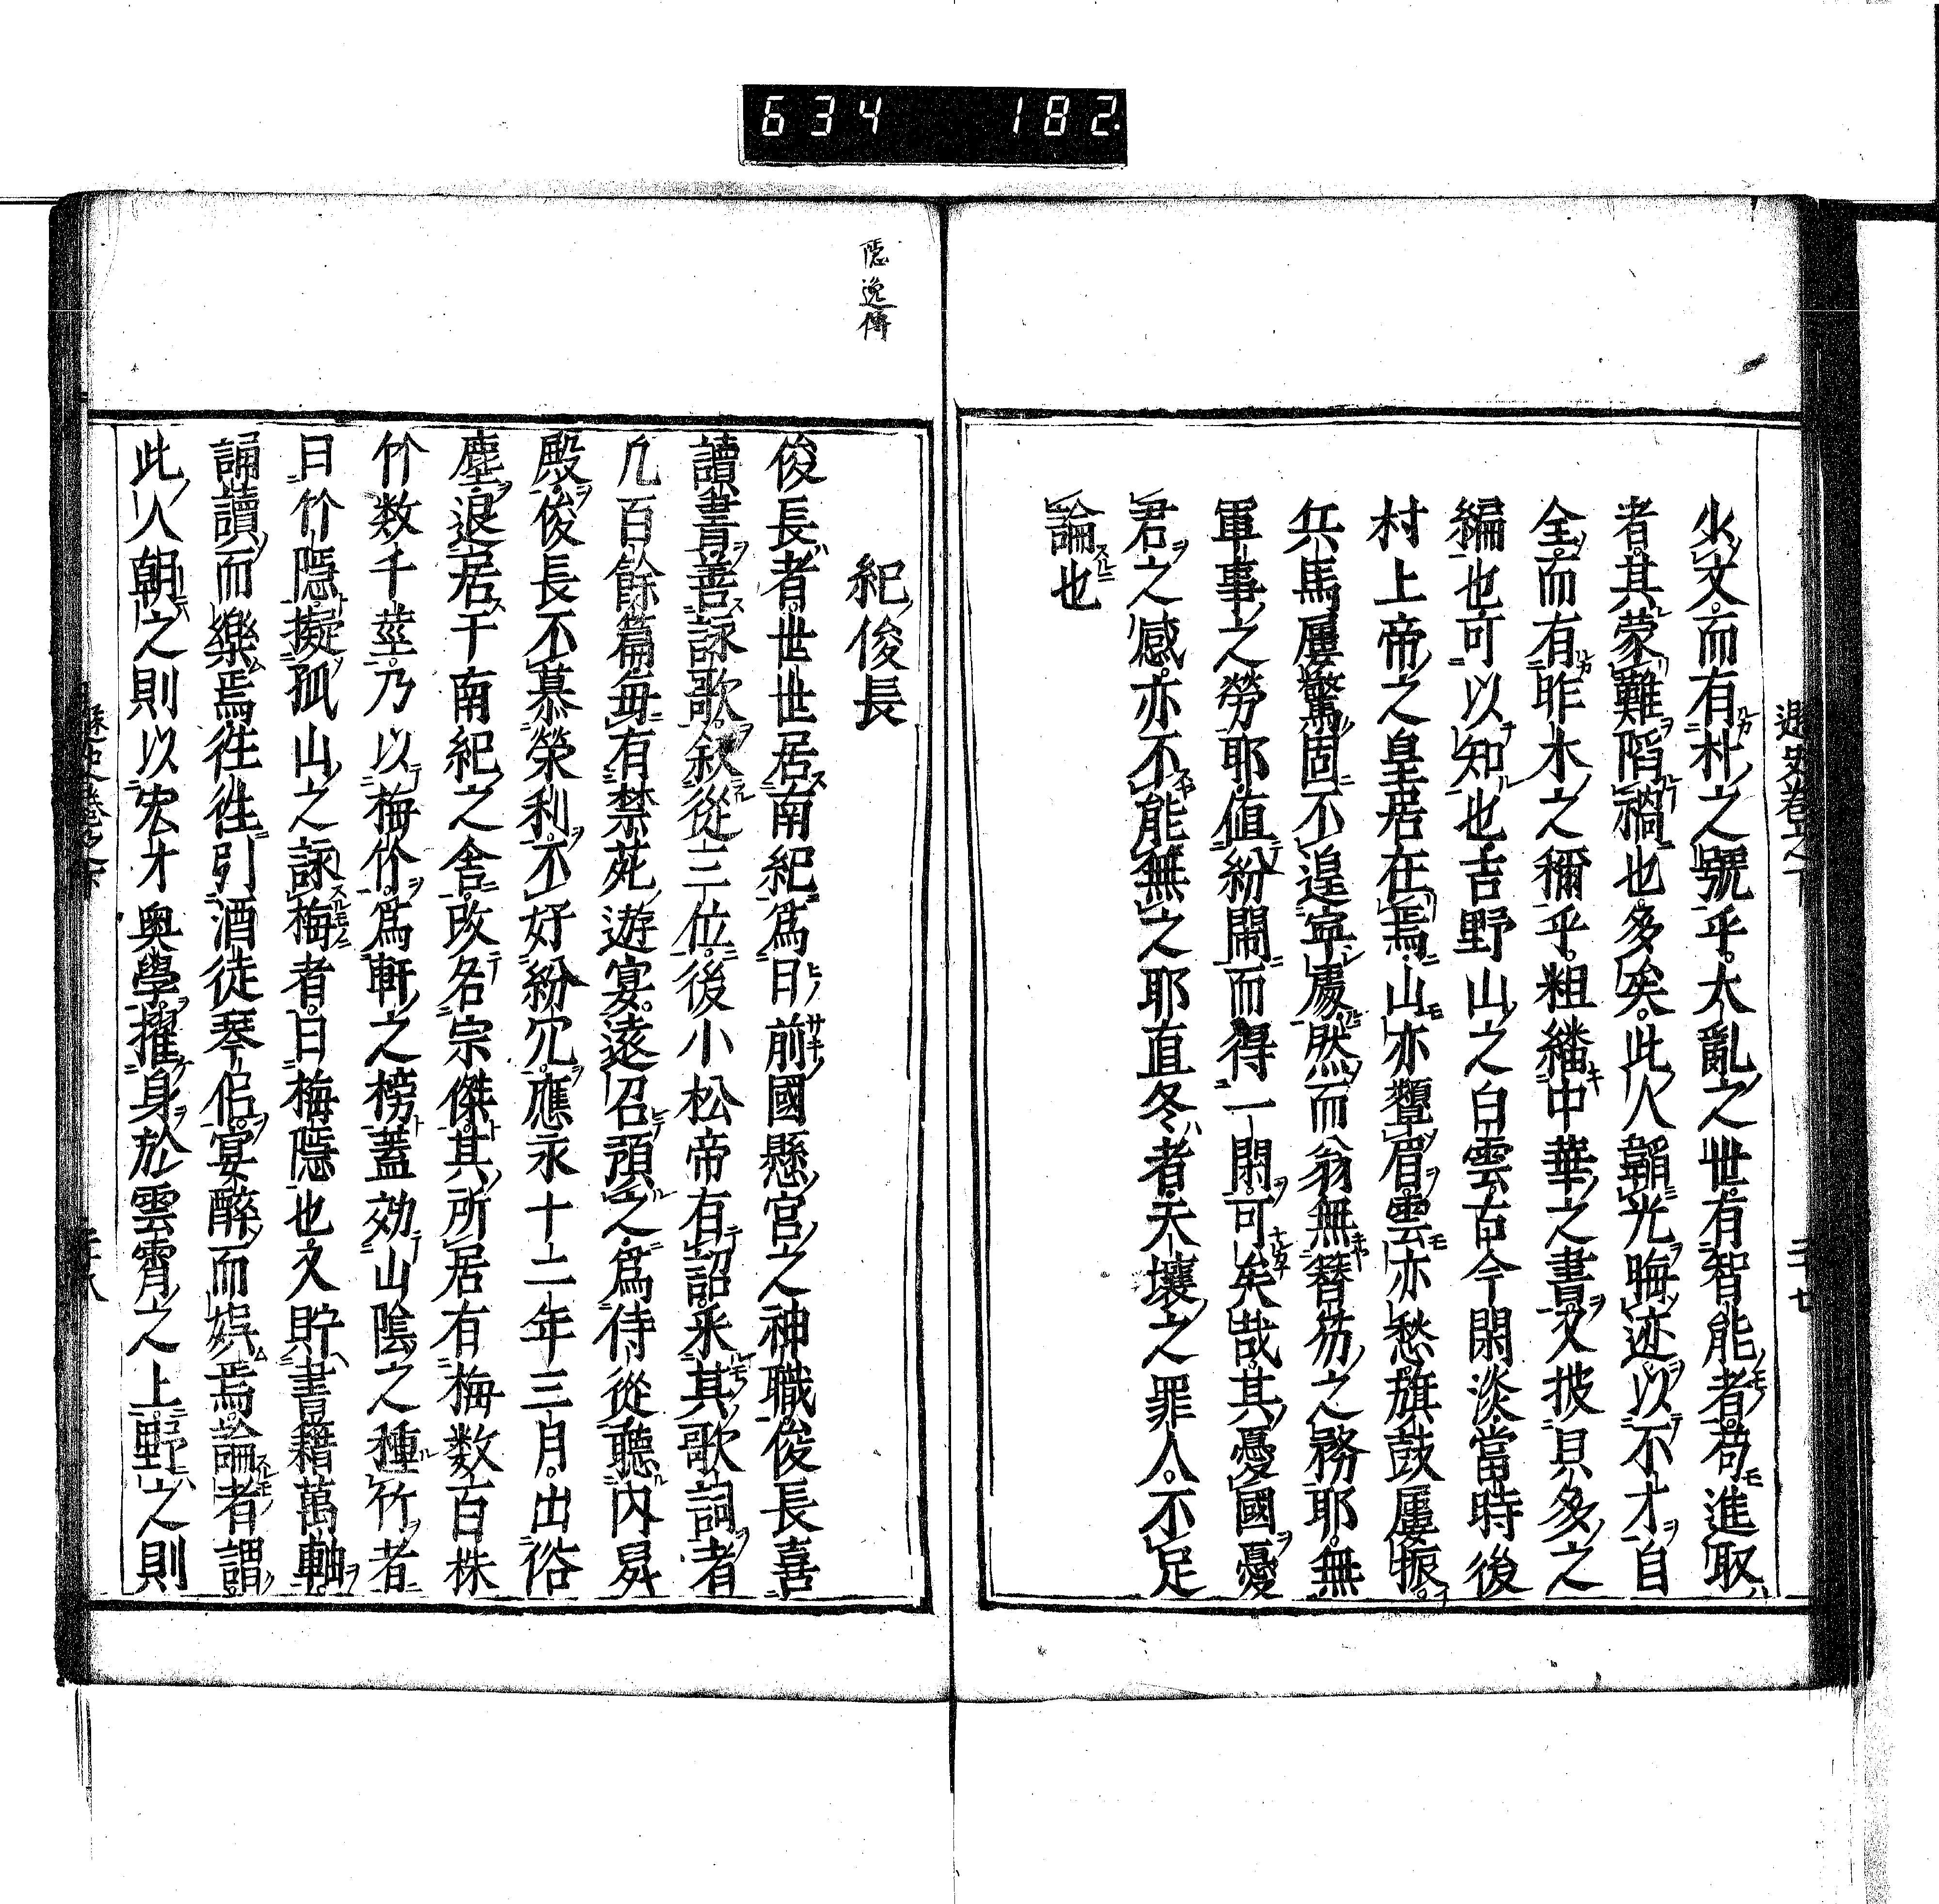 634 182
少文而有朴之號乎太亂之世有智能者苟進取
者其蒙難陷禍也多矣此人韜光晦迹以不才自
全而有昨木之稱乎粗繙中華之書又披貝多之
編也可以知也吉野山之白雲古今閑淡當時後
村上帝之皇居在焉山亦顰眉雲亦愁旗鼓屢振
兵馬屢驚固不遑寧處然而翁無簪笏之務耶無
軍事之勞耶値紛鬧而得一閑可矣哉其憂國憂
君之感亦不能無之耶直冬者天壤之罪人不足
論也
隱逸傳
紀俊長
俊長者世世居南紀爲日前國懸宮之神職俊長喜
讀書善詠歌叙從三位後小松帝有詔釆其歌詞者
凢百餘篇毎有禁苑遊宴遠召預之爲侍從聽内舁
殿俊長不慕榮利不好紛冗應永十二年三月出俗
塵退居于南紀之舍改名宗傑其所居有梅数百株
竹数千莖乃以梅竹爲軒之榜蓋効山陰之種竹者
曰竹隱擬孤山之詠梅者曰梅隱也又貯書籍萬軸
誦讀而樂焉往往引酒徒琴侶宴醉而娯焉論者謂
此人朝之則以宏才奥學擢身於雲霄之上野之則